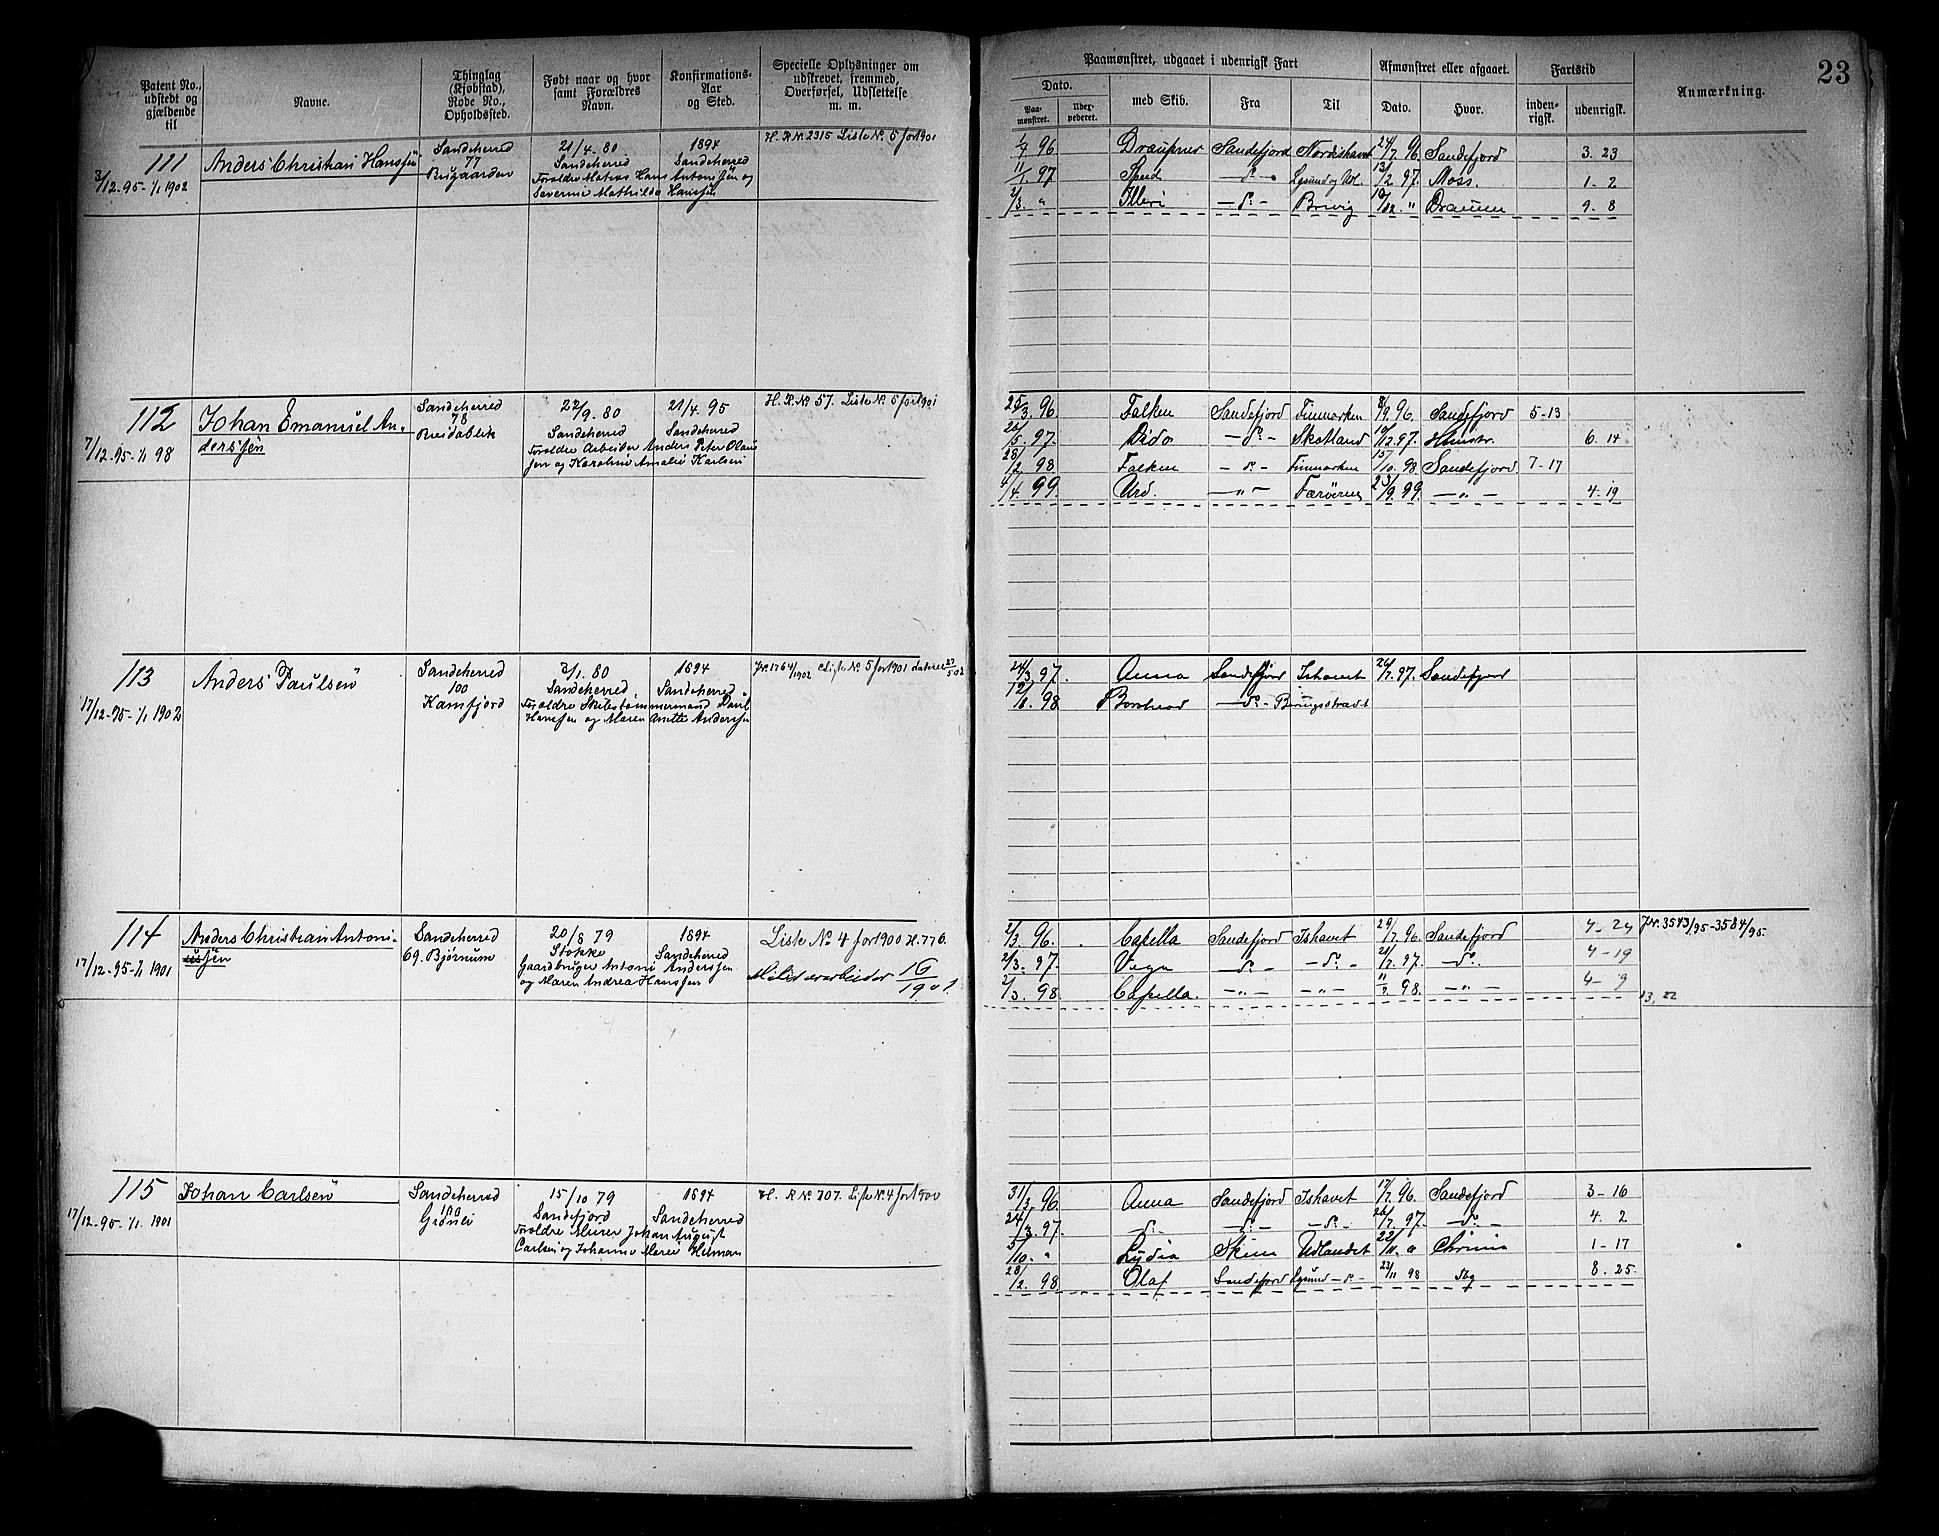 Patent No.,
udstedt og
gjældende
til
Navne.
Thinglag
(Kjøbstad),
Rode No.,
Opholdssted.
Født naar og hvor
samt Forældres
Navn.
Konfirmations-
Aar
og Sted.
Specielle Oplysninger om
udskrevet, fremmed,
Overførsel, Udslettelse
m. m.
Paamønstret, udgaaet i udenrigsk Fart
Dato.
Paa-
mønstret.
med Skib.
Fra
Til
Afmønstret eller afgaaet.
Dato.
Hvor.
Fartstid
inden-
rigsk.
udenrigsk.
Anmærkning.
23
111
3/12.95-1/1 1902
Anders Christian Hanssen
Sandeherred
77
21/4. 80
Sandeherred
Forældre Matros Hans Antonissen og
Severine Mathilde Hanssen
1894
Sandeherred
H. R. No. 2315 Liste No. 5 for 1901
96 Draupner Sandefjord Nordishavet 24/7 96 Sandefjord 3. 23
11/1. 97 Speed - do - 13/2 97. Moss. 1 - 2
2/3. " - do - Brevig " 9. 8
112
7/12.95-1/1 98
Johan Emanuel An-
derssen
Sandeherred
78
Breidablik
22/9. 80
Sandeherred
Forældre Arbeider Anders Peter Olaus-
sen og Karoline Amalie Karlsen
21/4. 95
Sandeherred
H. R. No. 57. Liste No. 5 for 1901
25/3 96. Falken Sandefjord Finmarken 8/9. 96. Sandefjord 5-13
22/5. 97. Dido - do - Skotland 97. 6. 14
28/2. 98. Falken - do - Finmarken 15/10. 98. Sandefjord 7-17
4/4. 99. Urd. - " - Færøerne 23/9. 99. - " - 4- 19
113
17/12-95-1/1 1902
Anders Paulsen
Sandeherred
100
Kamfjord
3/1. 80
Sandeherred
Forældre Skibstømmermand Paul
Hanssen og Maren Anette Anderssen
1894
Sandeherred
Jr. 1764/1902 Liste No. 5 for 1901 dateret 27/5 02
24/3. 97. Anna Sandefjord Ishavet 26/7. 97. Sandefjord
98 - do - Beringsstrædet
114
17/12-95-1/1 1901
Anders Christian Antoni-
ussen
Sandeherred
69. Bjørnum
20/8 79
Stokke
Gaardbruger Antoni Anderssen
og Maren Andrea Hanssen
1894
Sandeherred
Liste No. 4 for 1900 H. 776.
Militærarbeider 16/1901
2/3. 96. Capella Sandefjord Ishavet 29/7. 96. Sandefjord 4- 24 Jr. 3543/95-3584/95.
2/3. 97. Vega - do - - do - 21/7. 97. - do. 4 - 19
2/3. 98. Capella. - " - - " - 98. - " - 4- 9
13, 22
115
17/12-95-1/1. 1901
Johan Carlsen
Sandeherred
15/10 79
Sandefjord
Forældre Murer Johan August
Carlsen og Johanne Marie Heiman
1894
Sandeherred
H. R No. 707. Liste No. 4 for 1900
31/3. 96. Anna Sandefjord Ishavet 17/7. 96. Sandefjord 3- 16
24/3. 97. - do. - - do - - do - 26/7. 97. - do. - 4. 2
5/10. " Lydia Skien Udlandet 22/11. " Chrinia 1 - 17
28/2. 98. Olaf Sandefjord - do - 22/11 98 8. 25.